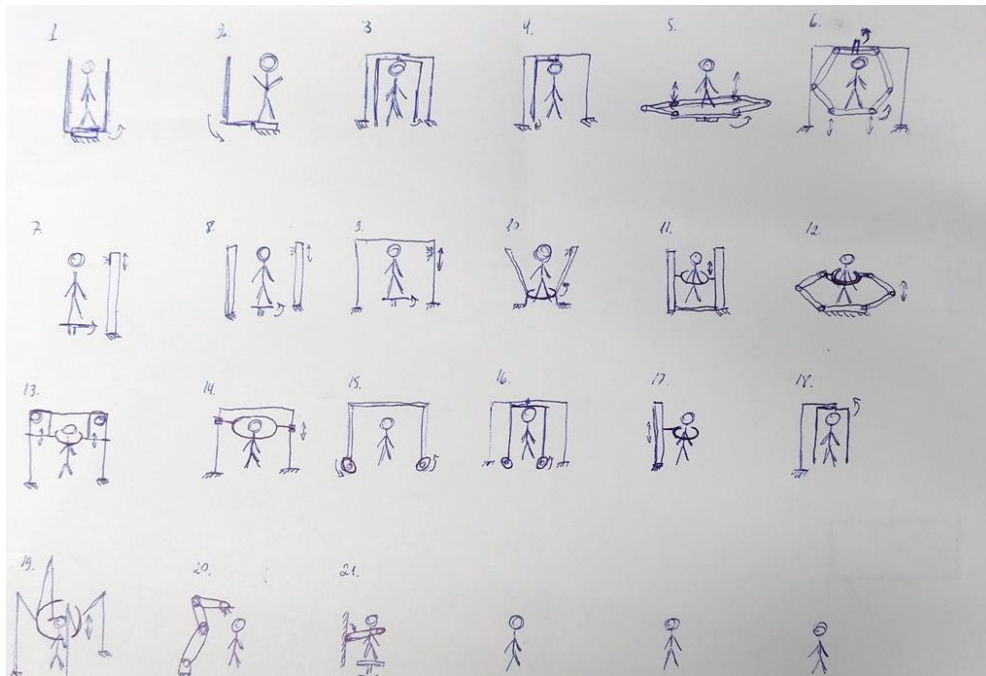 1. 2. 3 4. 5. 6.
7. 8. 9. 10. 11. 12.
13. 14. 15. 16. 17 18.
19. 20. 21.